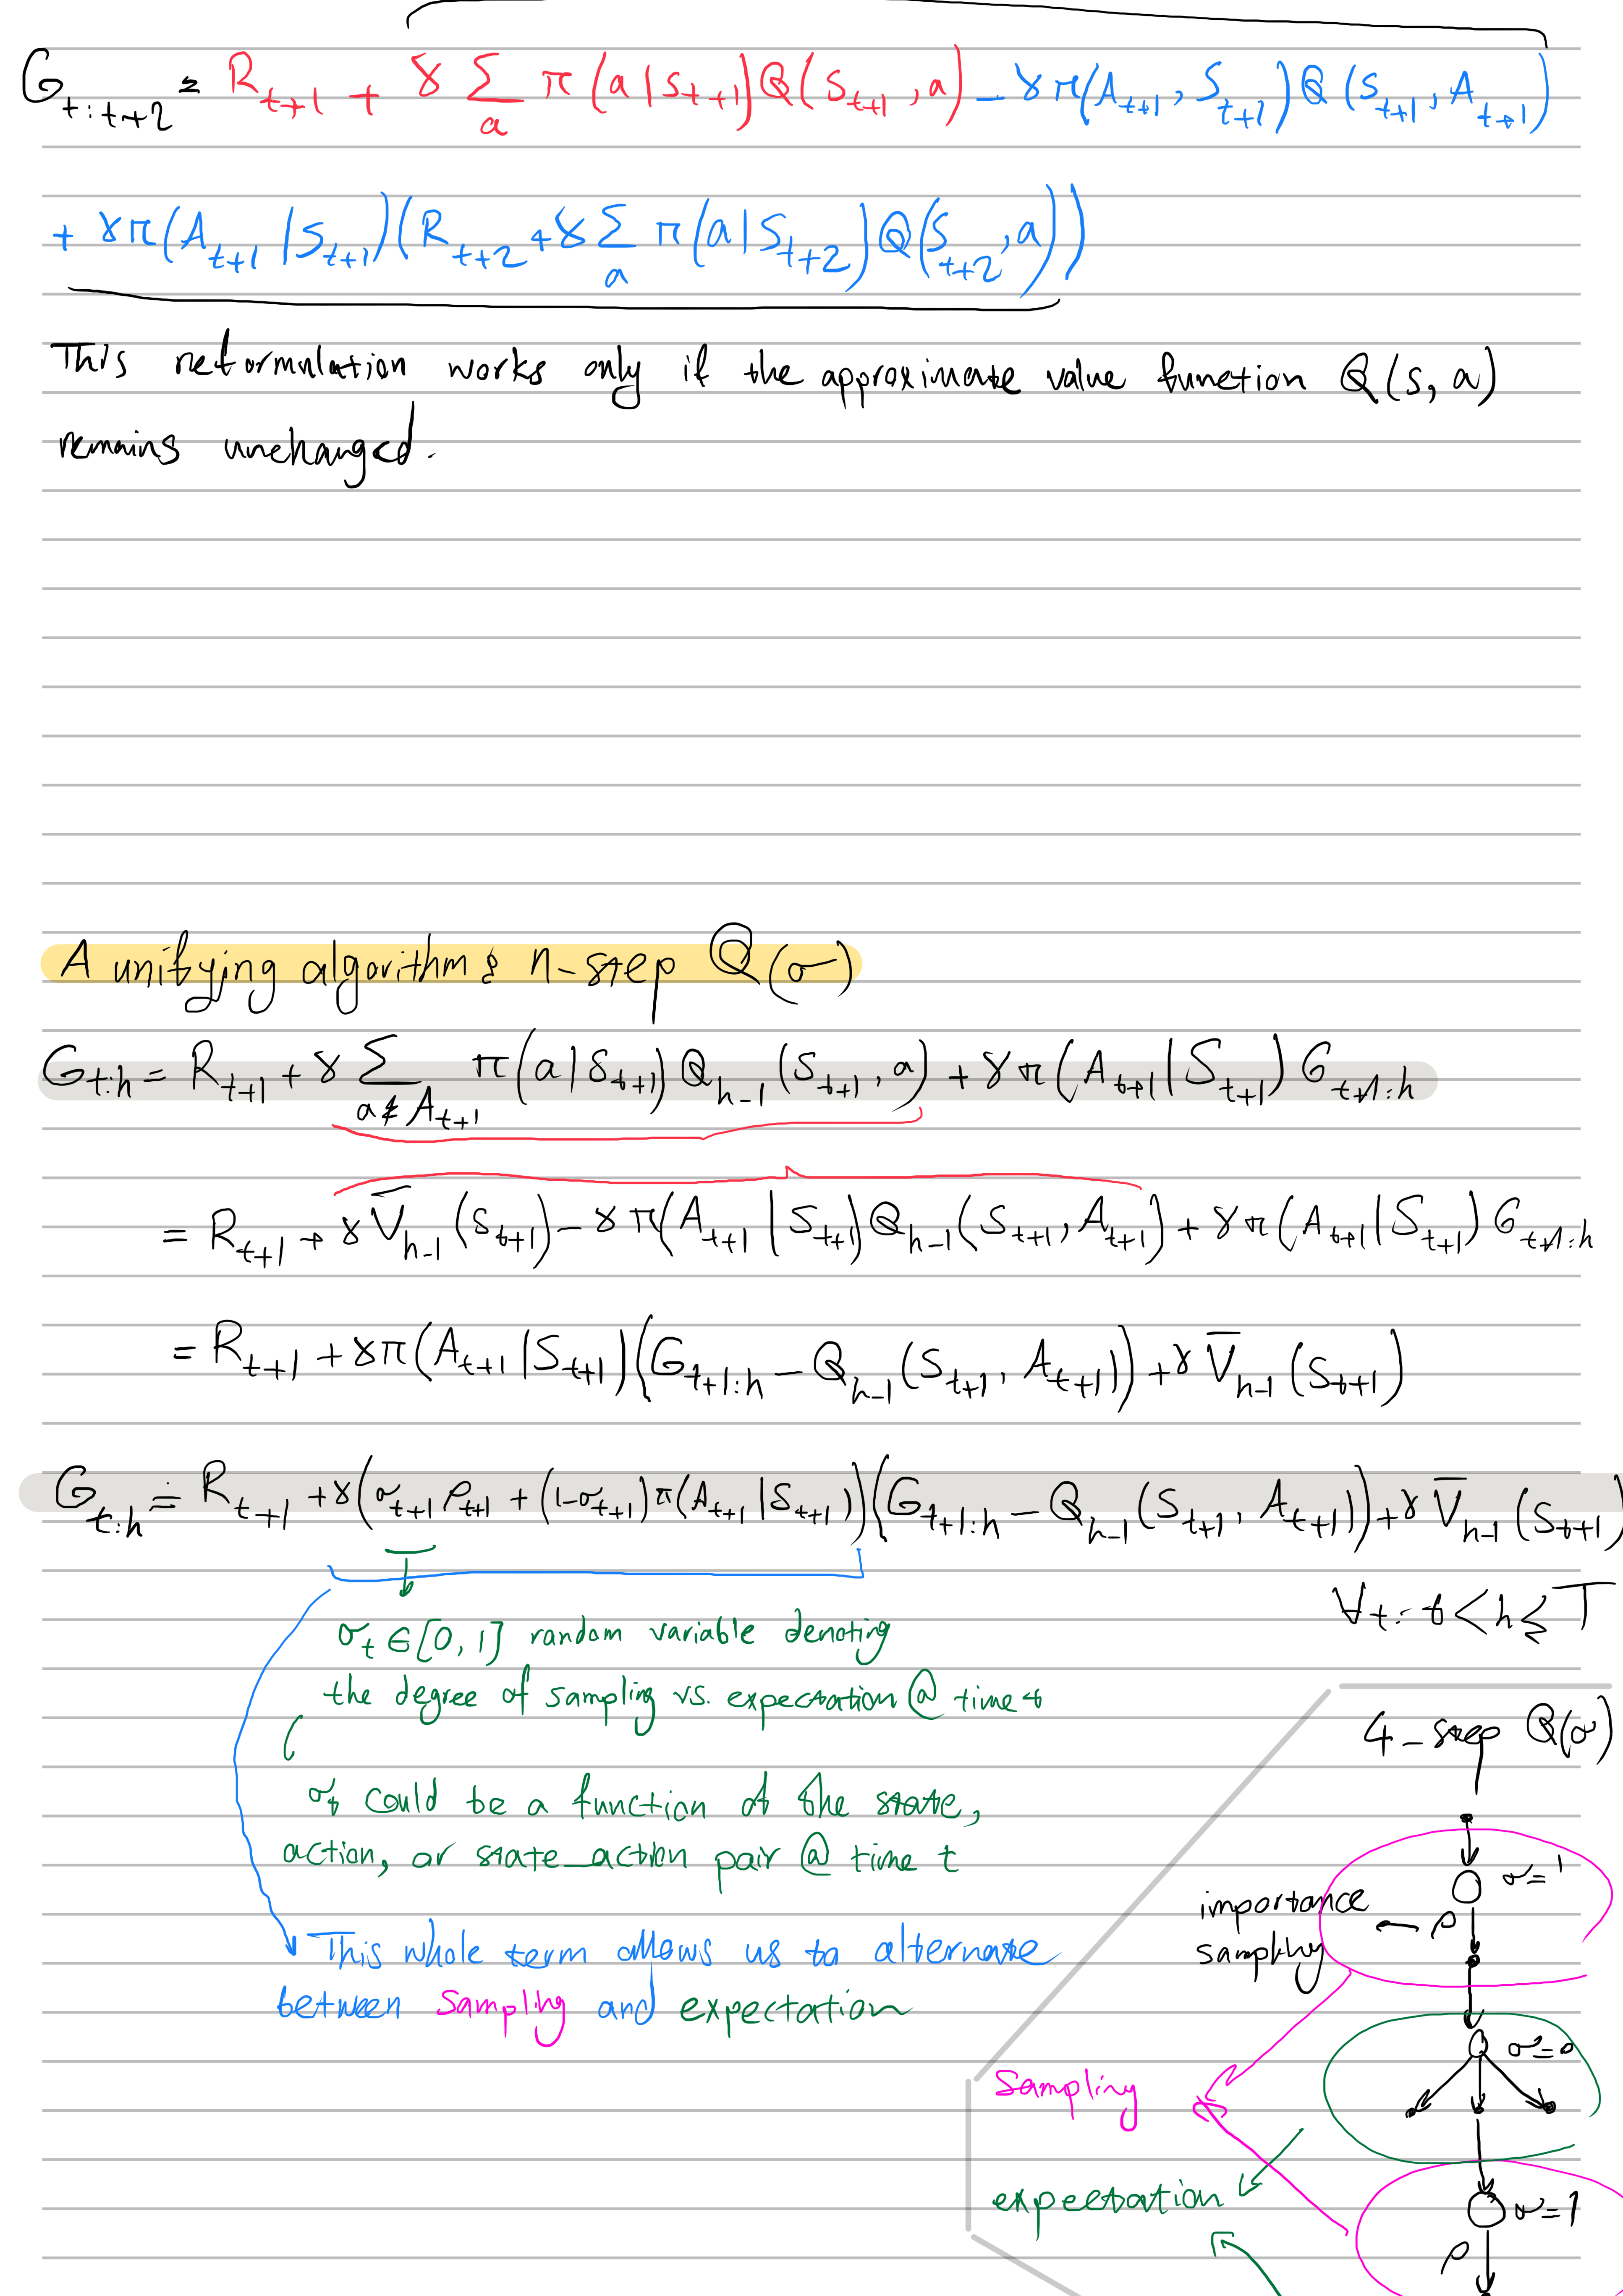 G_{t:t+2} = R_{t+1} + γ Σ_a π(a|S_{t+1})Q(S_{t+1}, a) - γπ(A_{t+1}, S_{t+1})Q(S_{t+1}, A_{t+1})
+ γπ(A_{t+1}|S_{t+1})(R_{t+2} + γ Σ_a π(a|S_{t+2})Q(S_{t+2}, a))
This reformulation works only if the approximate value function Q(s, a)
remains unchanged.
A unifying algorithm: n-step Q(σ)
G_{t:h} = R_{t+1} + γ Σ_{a≠A_{t+1}} π(a|S_{t+1})Q_{h-1}(S_{t+1}, a) + γπ(A_{t+1}|S_{t+1})G_{t+1:h}
= R_{t+1} + γV̄_{h-1}(S_{t+1}) - γπ(A_{t+1}|S_{t+1})Q_{h-1}(S_{t+1}, A_{t+1}) + γπ(A_{t+1}|S_{t+1})G_{t+1:h}
= R_{t+1} + γπ(A_{t+1}|S_{t+1})(G_{t+1:h} - Q_{h-1}(S_{t+1}, A_{t+1})) + γV̄_{h-1}(S_{t+1})
G_{t:h} ≐ R_{t+1} + γ(σ_{t+1}ρ_{t+1} + (1-σ_{t+1})π(A_{t+1}|S_{t+1}))(G_{t+1:h} - Q_{h-1}(S_{t+1}, A_{t+1})) + γV̄_{h-1}(S_{t+1})
∀t: t<h≤T
σ_t ∈ [0, 1] random variable denoting
the degree of sampling vs. expectation @ time t
σ_t could be a function of the state,
action, or state_action pair @ time t
This whole term allows us to alternate
between sampling and expectation
4-step Q(σ)
σ=1
importance
sampling
ρ
σ=0
Sampling
expectation
σ=1
ρ